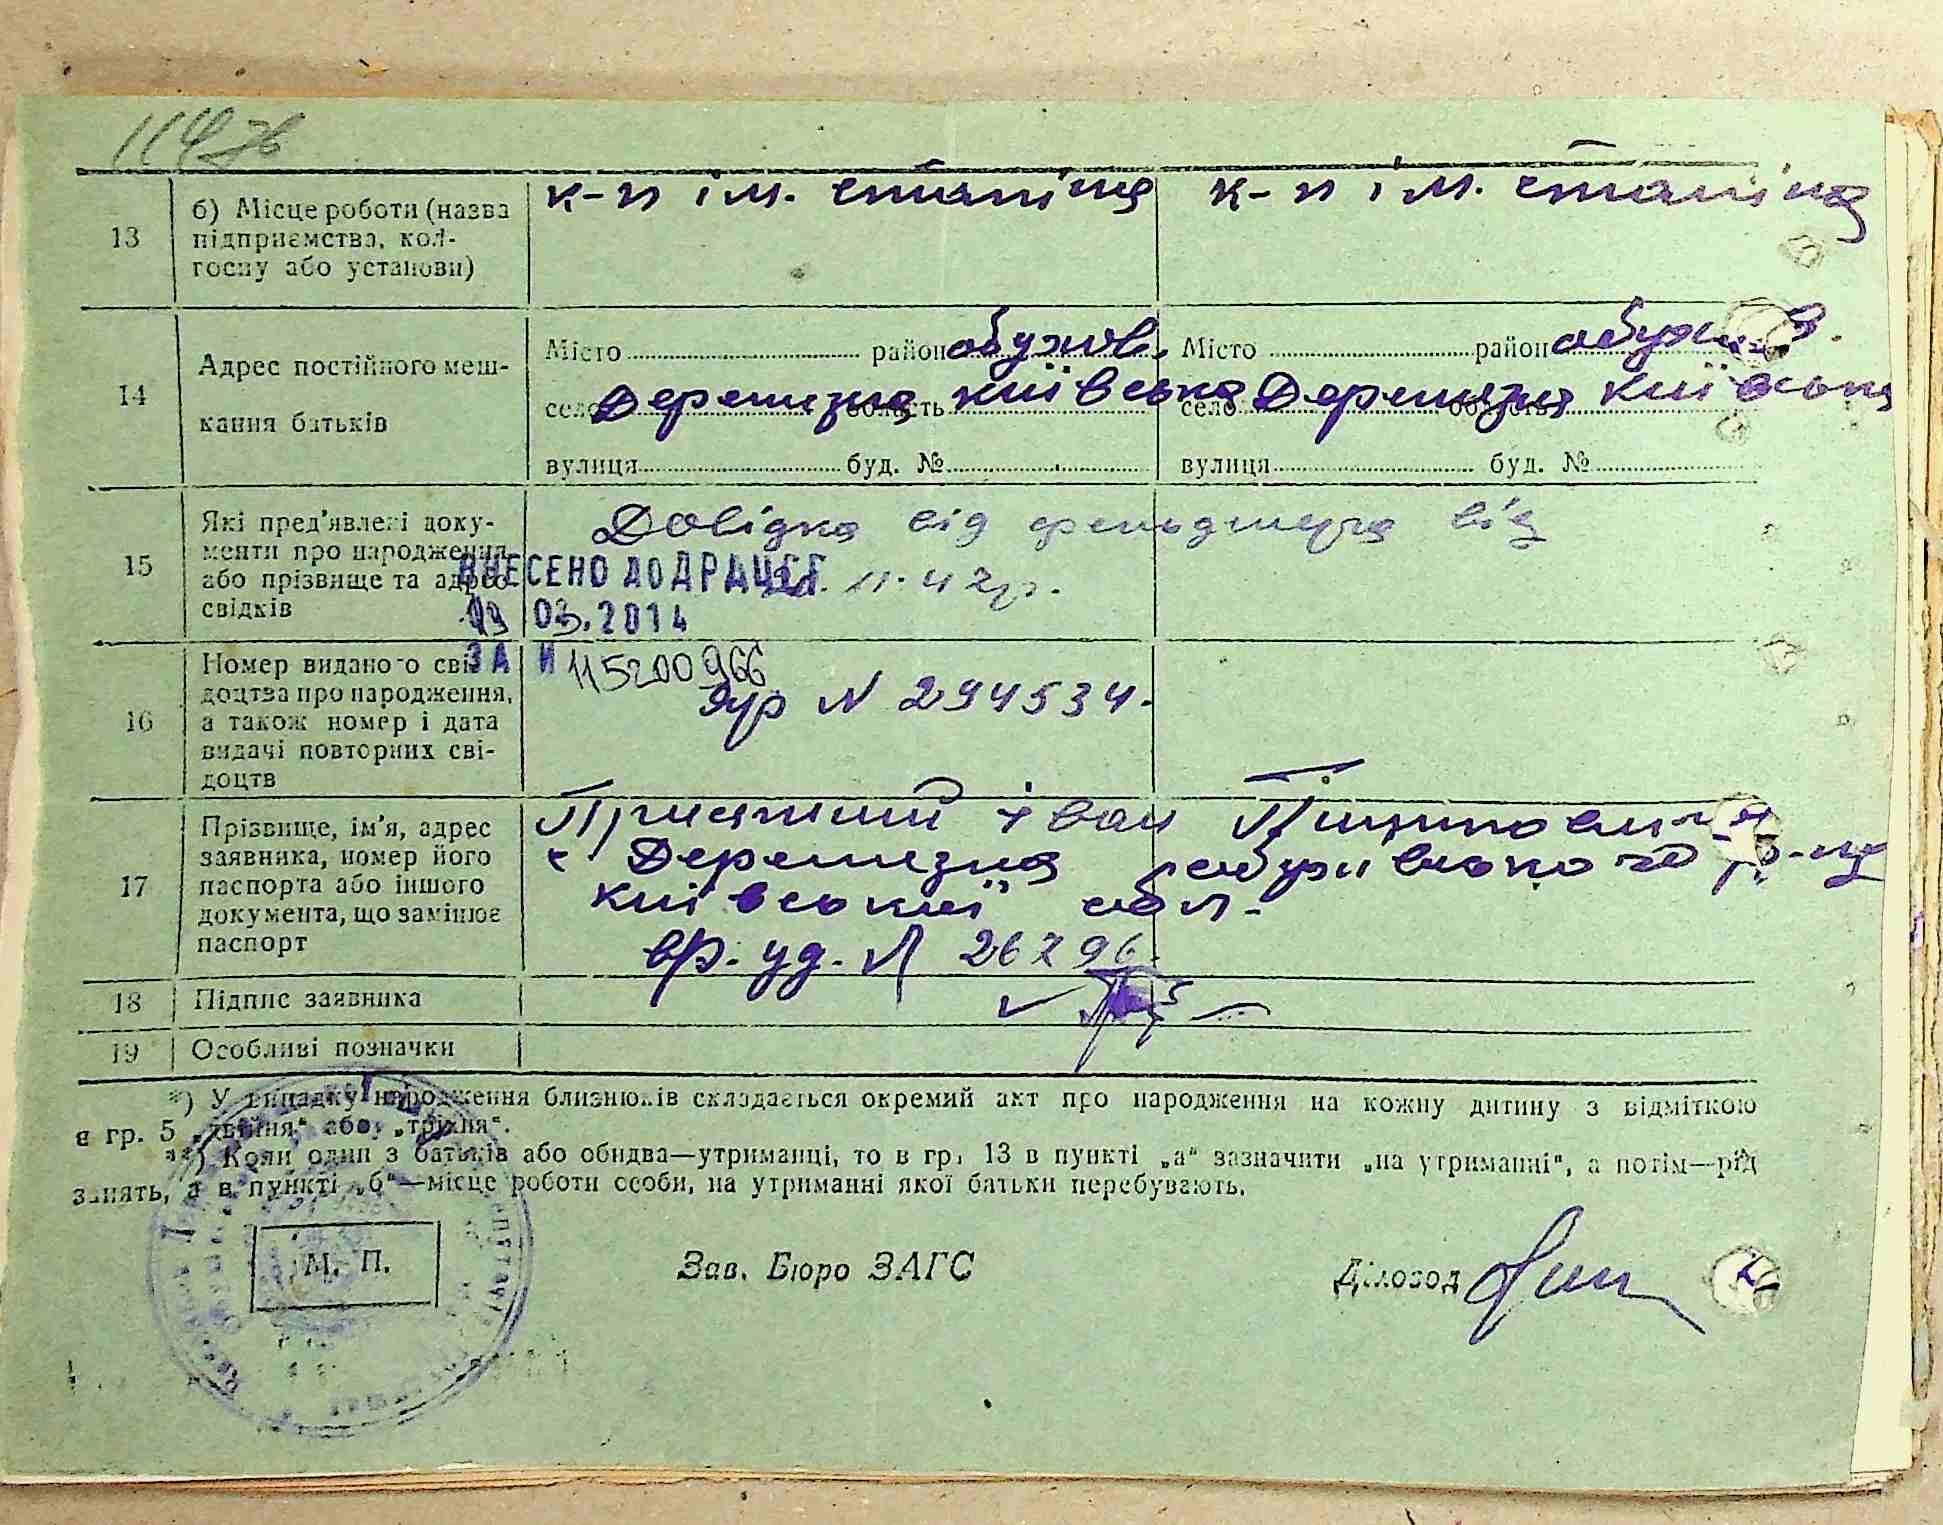 114
13
б) Місце роботи (назва
підприємства, кол-
госпу або установи)
к-п ім. сталіна
к-п ім. сталіна
14
Адрес постійного меш-
кання батьків
Місто район обухів.
село Деремезна область київська
вулиця буд. №
Місто район обухів.
село Деремезна область київська
вулиця буд. №
15
Які пред'явлені доку-
менти про народження
або прізвище та адрес
свідків
Довідка від фельдшера від
11.42р.
ВНЕСЕНО ДО ДРАЦСГ
03.2014
ЗА №
115200966
16
Номер виданого сві-
доцтва про народження,
а також номер і дата
видачі повторних сві-
доцтв
N 294534.
17
Прізвище, ім'я, адрес
заявника, номер його
паспорта або іншого
документа, що замінює
паспорт
Іван
с. Деремезна обухівського р-ну
київської обл.
вр. уд. N 26796.
18
Підпис заявника
19
Особливі позначки
*) У випадку народження близнюків складається окремий акт про народження на кожну дитину з відміткою
в гр. 5 „двійня“ або „трійня“.
**) Коли один з батьків або обидва—утриманці, то в гр. 13 в пункті „а“ зазначити „на утриманні“, а потім—рід
занять, а в пункті „б“—місце роботи особи, на утриманні якої батьки перебувають.
М. П.
Зав. Бюро ЗАГС
Діловод